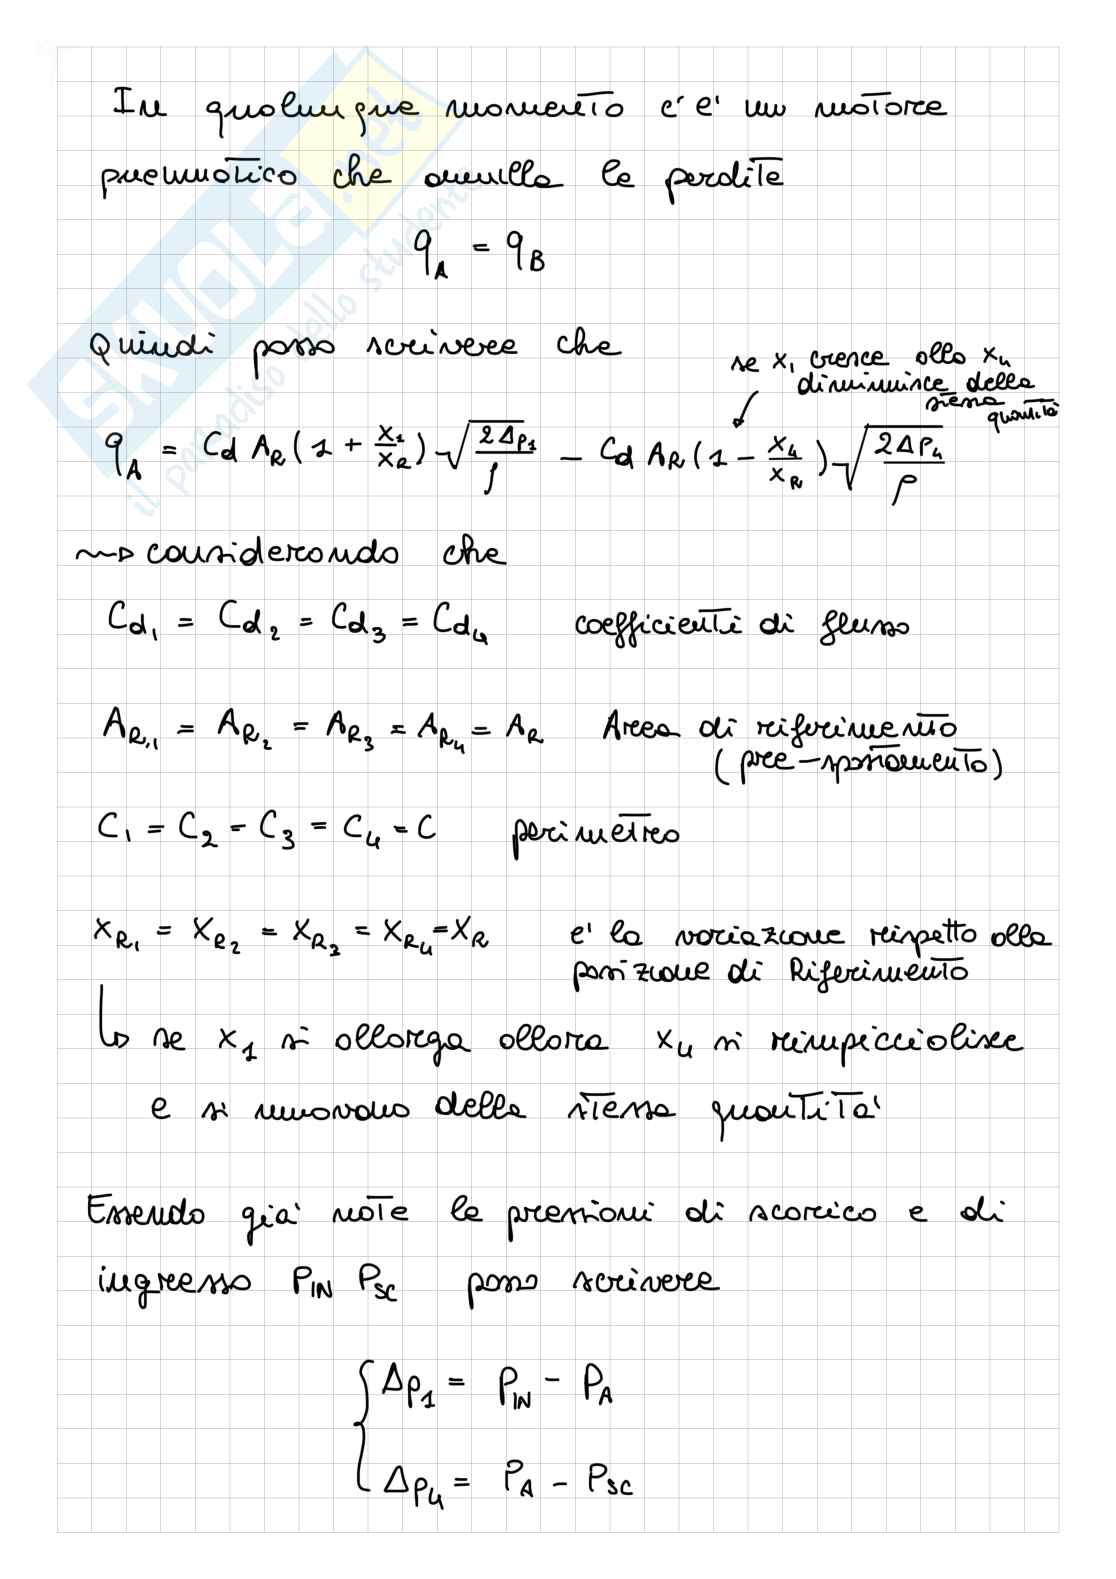 In qualunque momento c'e' un motore
pneumatico che annulla le perdite
q_A = q_B
Quindi posso scrivere che
se x_1 cresce allo x_4
diminuisce della
stessa
quantità
q_A = Cd A_R (1 + x_1/x_R) √(2Δp_1/ρ) - Cd A_R (1 - x_4/x_R) √(2Δp_4/ρ)
⇝ considerando che
Cd_1 = Cd_2 = Cd_3 = Cd_4 coefficienti di flusso
A_R,1 = A_R2 = A_R3 = A_R4 = A_R Area di riferimento
(pre-spostamento)
C_1 = C_2 = C_3 = C_4 = C perimetro
x_R1 = x_R2 = x_R3 = x_R4 = x_R e' la variazione rispetto alla
posizione di Riferimento
↳ se x_1 si allarga allora x_4 si rimpicciolisce
e si muovono della stessa quantita'
Essendo gia' note le pressioni di scarico e di
ingresso P_IN P_SC posso scrivere
{ Δp_1 = P_IN - P_A
Δp_4 = P_A - P_SC
SKUOLA.net
il paradiso dello studente